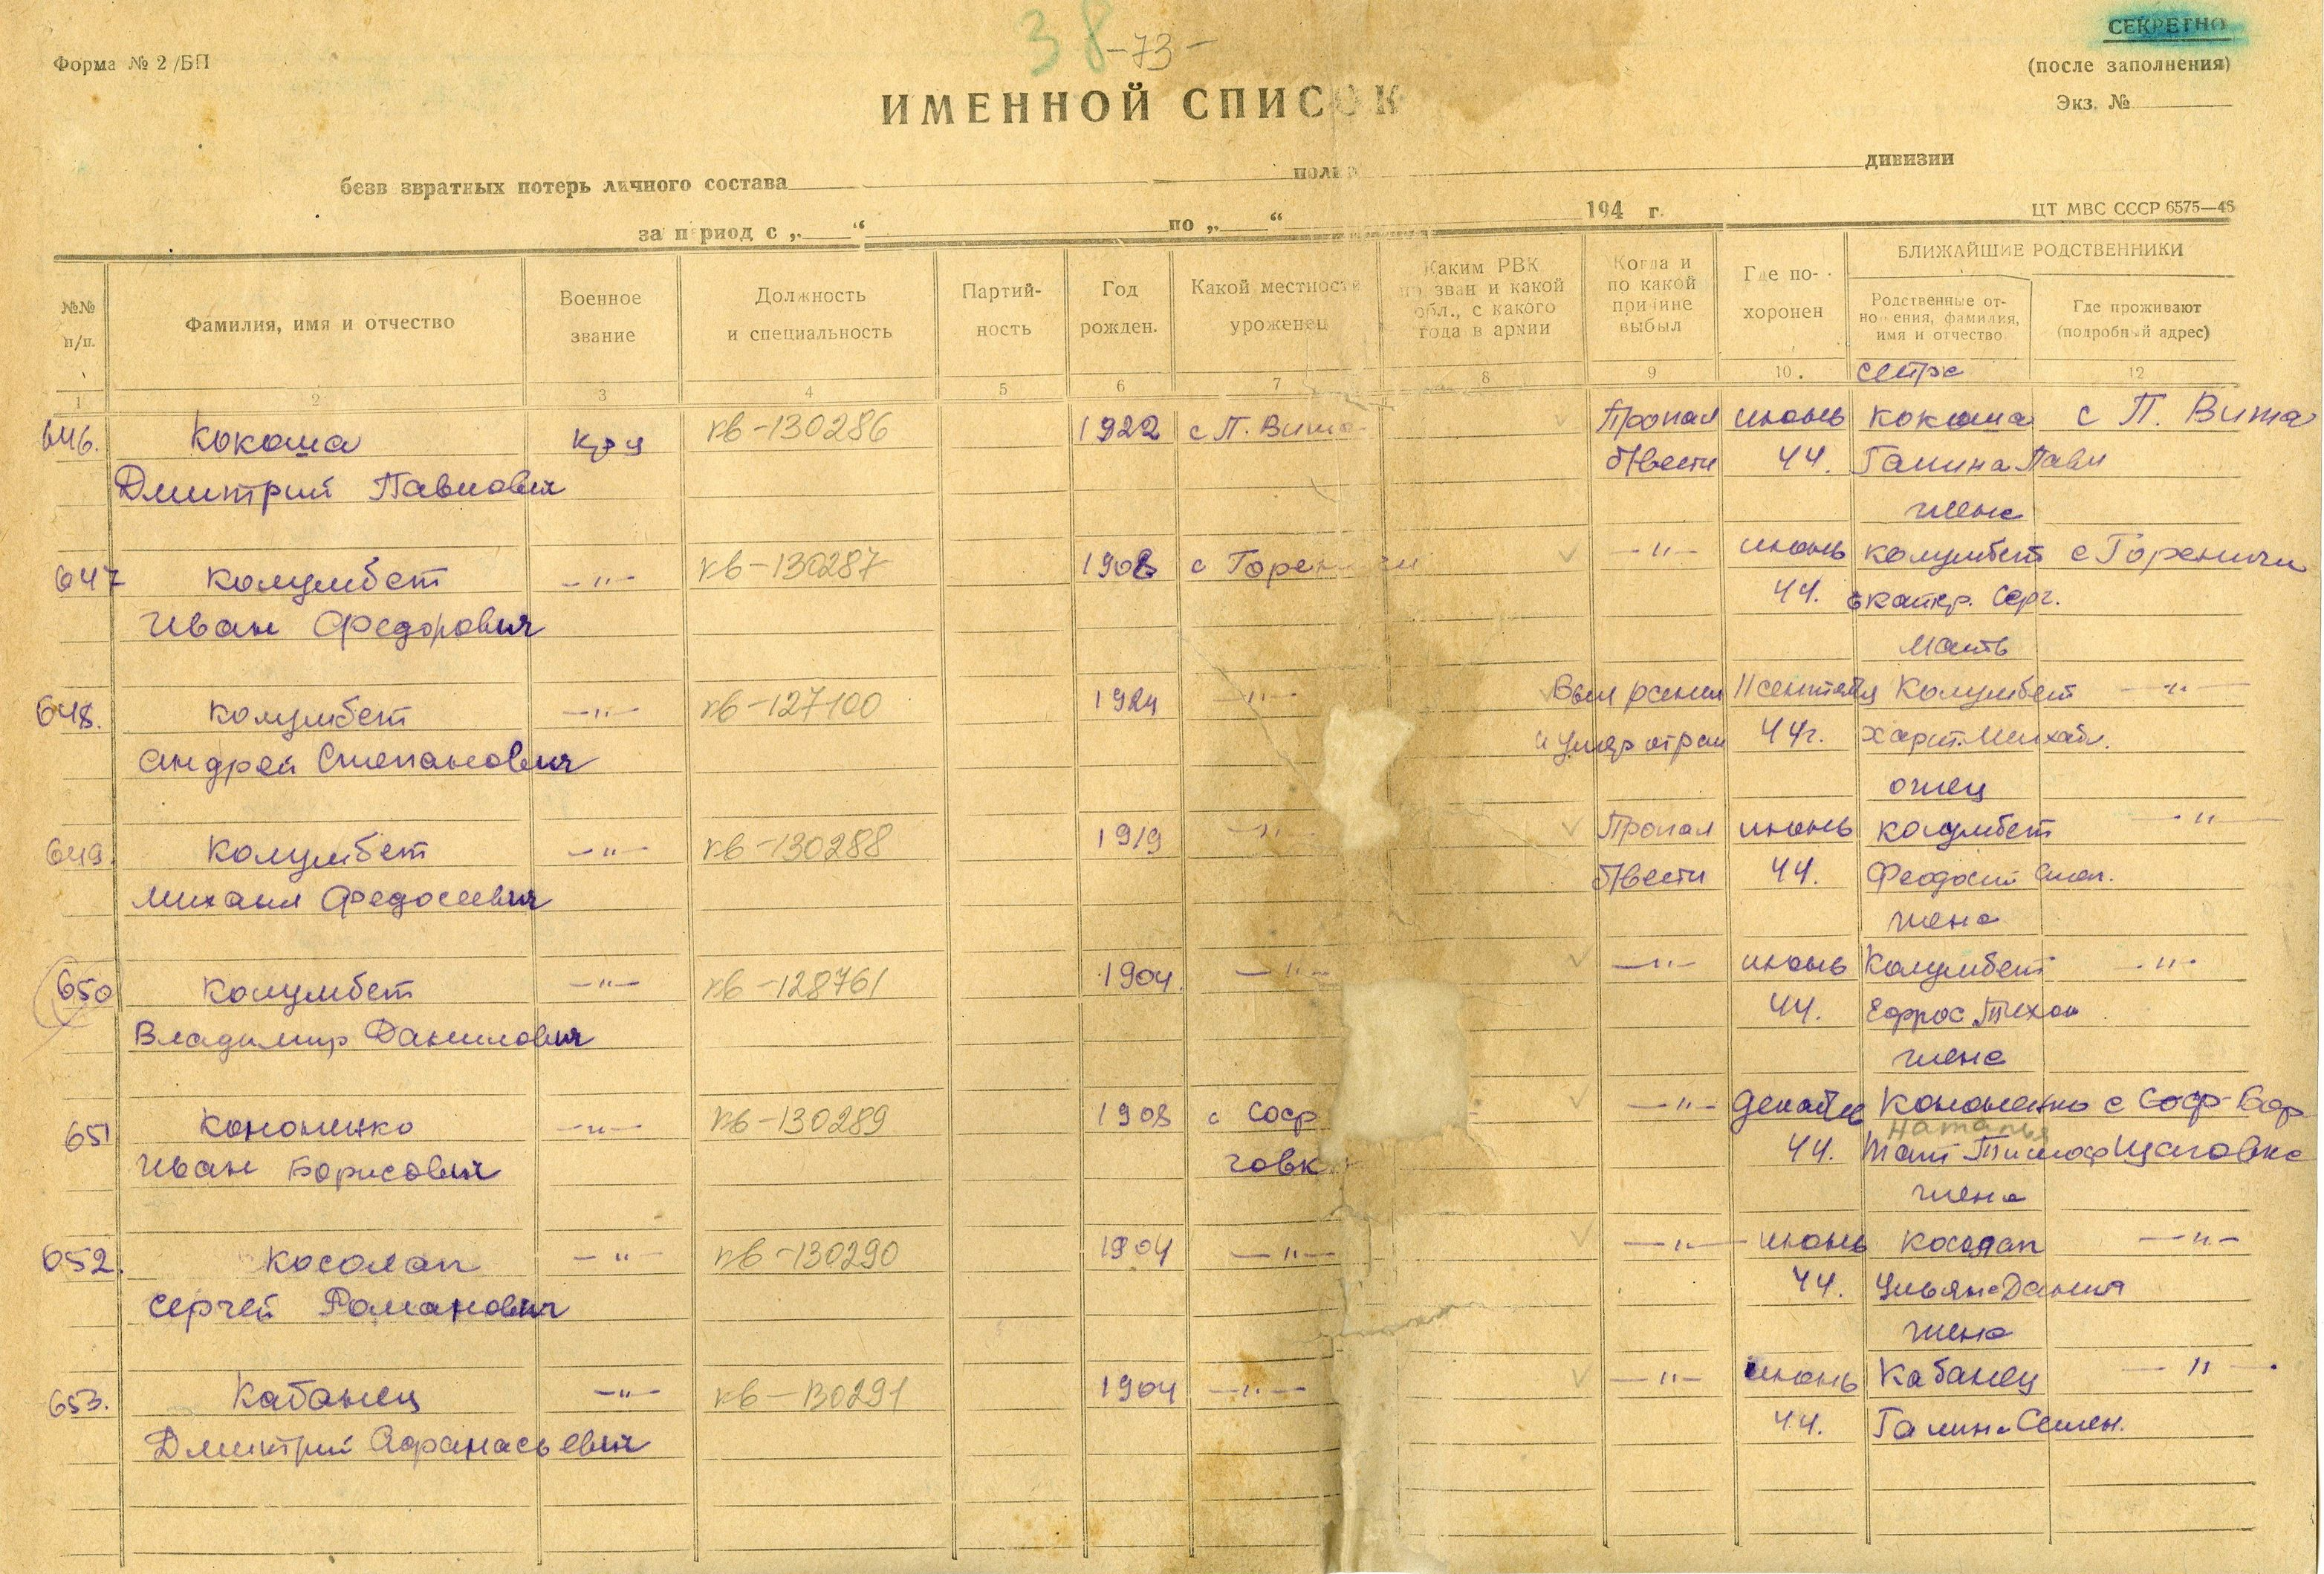 38 -73-
СЕКРЕТНО
Форма № 2 /БП
(после заполнения)
ИМЕННОЙ СПИСОК
Экз. №
безв звратных потерь личного состава полка дивизии
за период с „ “ по „ “ 194 г.
ЦТ МВС СССР 6575—46
№№ п/п.
Фамилия, имя и отчество
Военное звание
Должность и специальность
Партий-ность
Год рожден.
Какой местности уроженец
Каким РВК призван и какой обл., с какого года в армии
Когда и по какой причине выбыл
Где по-хоронен
БЛИЖАЙШИЕ РОДСТВЕННИКИ
Родственные от-ношения, фамилия, имя и отчество
Где проживают (подробный адрес)
1 2 3 4 5 6 7 8 9 10. 12
сестра
646. Кокоша кр-ц кв-130286 1922 с П. Вита Пропал июнь Кокоша с П. Вита
Дмитрий Павлович б/вести 44. Галина Павл
жена
647 Колумбет -"- кв-130287 1908 с Горен чи -"- июнь Колумбет с Гореничи
Иван Федорович 44. Екатер. Серг.
мать
648. Колумбет -"- кв-127100 1924 -"- 11 сентября Колумбет -"-
Андрей Степанович и умер от ран 44г. Харит. Михайл.
отец
649. Колумбет -"- кв-130288 1919 -"- Пропал июнь Колумбет -"-
Михаил Федосеевич б/вести 44. Феодосий Степ.
жена
650 Колумбет -"- кв-128761 1904. -"- -"- июнь Колумбет -"-
Владимир Данилович 44. Ефрос. Тихон.
жена
651 Кононенко -"- кв-130289 1908 с Соф -"- декабре Кононенко с Соф-Бор
Наталья
Иван Борисович говк 44. Тимоф Щаговка
жена
652. Косолап -"- кв-130290 1904 -"- -"- июнь Косолап -"-
Сергей Романович 44. Ульяна Данил
жена
653. Кабанец -"- кв-130291 1904 -"- -"- июнь Кабанец -"-
Дмитрий Афанасьевич 44. Галина Семен.